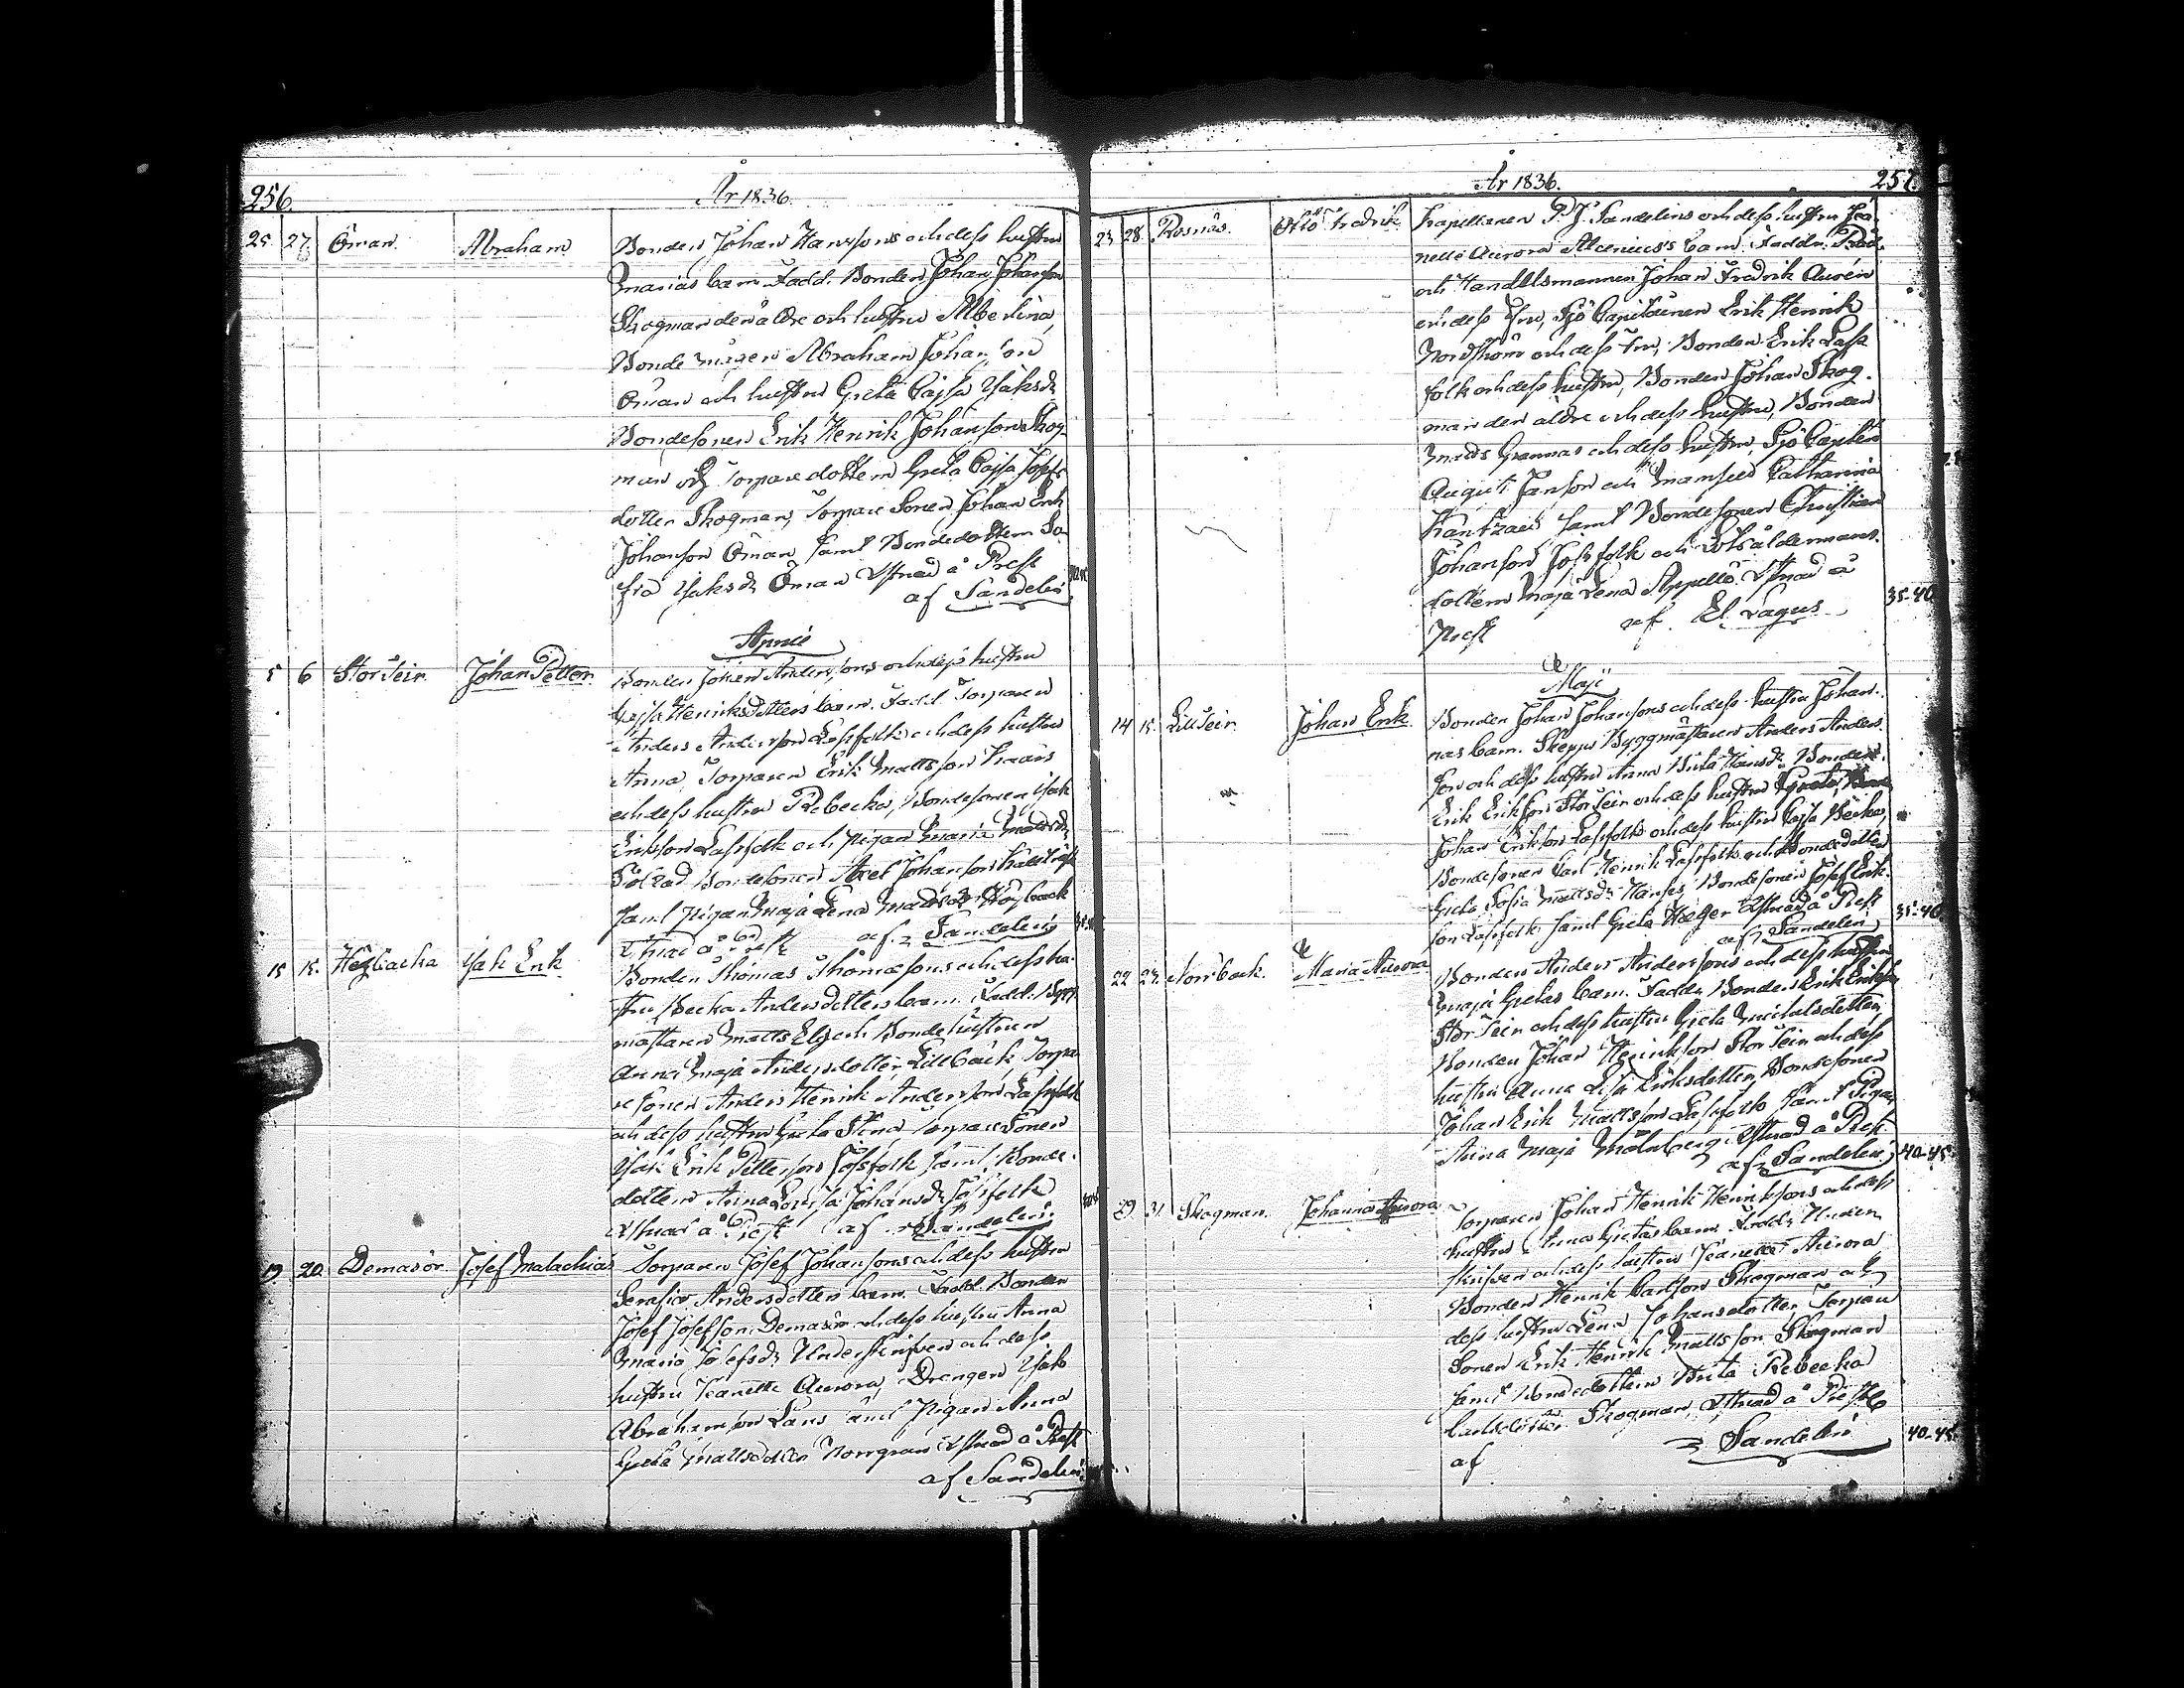 256.
År 1836.
25. 27. Öman. Abraham Bonden Johan Hanssons och dess hustru
Marias barn Fadd. Bonden Johan Johansson
Skogman den äldre och hustru Albertina,
Bonde mågen Abraham Johansson
Öman och hustru Greta Cajsa Jaksdr
Bondesonen Erik Henrik Johansson Skog-
man och Torparedottern Greta Cajsa Josefs
dotter Skogman, Torpare Sonen Johan Erik
Johansson Öman samt Bondedottern So-
fia Jaksdr Öman Utfnad å Prest
af Sandelin
April
5 6 Stor Teir Johan Petter Bonden Johan Anderssons och dess hustru
Cajsa Henriksdotters barn. Fadd. Torparen
Anders Andersson Lassfolk och dess hustru
Anna, Torparen Erik Mattsson
och dess hustru Rebecka, Bondesonen Jak
Eriksson Lassfolk och Pigan Maria Mattsdr
Bondesonen Axel Johansson
samt Pigan Maja Lena Mattsdr
å Prest af Sandelin
15 15. Jak Erik Bonden Thomas Thomassons och dess hu-
stru Becka Andersdotters barn. Fadd. Bygg-
mästaren Matts Elg och Bondehustrun
Anna Maja Andersdotter Lillbäck Torpa-
re sonen Anders Henrik Andersson Lassfolk
och dess hustru Greta Stina, Torpare Sonen
Jak Erik Pettersson Jossfolk samt Bonde-
dottern Anna Lovisa Johansdr Jossfolk
å Prest af Sandelin
19. 20. Demasör Josef Malachias Torparen Josef Johanssons och dess hustru
Serafia Andersdotters barn. Fadd. Bonden
Josef Josefsson Demasör och dess hustru Anna
Maria Josefsdr Underskrifven och dess
hustru Jeanette Aurora, Drengen Jak
Abrahamsson Lans samt Pigan Anna
Greta Mattsdotter Norrgran å Prest
af Sandelin
År 1836.
257.
23. 28. Rosnäs. Otto Fredrik Kapellanen P. J. Sandelins och dess hustru Jea-
nette Aurora Alcenius's barn. Faddr. Råd-
och Handelsmannen Johan Fredrik Aurén
och dess Fru, Sjö Capitainen Erik Henrik
Nordström och dess Fru, Bonden Erik Lass
folk och dess hustru, Bonden Johan Skog-
man den äldre och dess hustru, Bonden
Matts Grannas och dess hustru, Sjö Capiten
August Janson och Mamsell Catharina
samt Bondesonen Christian
Johansson Jossfolk och Lotsåldermans-
dottern Maja Lena Appellö å
Prest af El. Lagus
35-40
Maji
14 15. Lill Teir Johan Erik Bonden Johan Johanssons och dess hustru Johan-
nas barn. Skepps Byggmästaren Anders Anders-
son och dess hustru Anna Brita Hansdr Bonden
Erik Eriksson Stor Teir och dess hustru Greta,
Johan Eriksson Lassfolk och dess hustru Cajsa Becka,
Bondesonen Carl Henrik Lassfolk och Bondedottern
Greta Sofia Mattsdr Bondesonen Josef Erik-
son Lassfolk samt Greta å Prest
af Sandelin
35-40
22 23. Norrback. Maria Aurora Bonden Anders Anderssons och dess hustru
Maja Gretas barn. Faddr. Bonden Erik Eriksson
Stor Teir och dess hustru Greta Michelsdotter,
Bonden Johan Henriksson Stor Teir och dess
hustru Anna Lisa Eriksdotter, Bondesonen
Johan Erik Mattsson Lassfolk samt Pigan
Anna Maja Malmberg. å Prest
af Sandelin
40-45
29. 31. Skogman. Johanna Aurora Torparen Johan Henrik Henrikssons och dess
hustru Anna Gretas barn. Faddr. Under-
skrifven och dess hustru Jeanette Aurora
Bonden Henrik Carlsson Skogman och
dess hustru Lena Johansdotter, Torpare
Sonen Erik Henrik Mattsson Skogman
samt Bondedottern Brita Rebecka
Carlsdotter Skogman, å Prest
af Sandelin
40-45